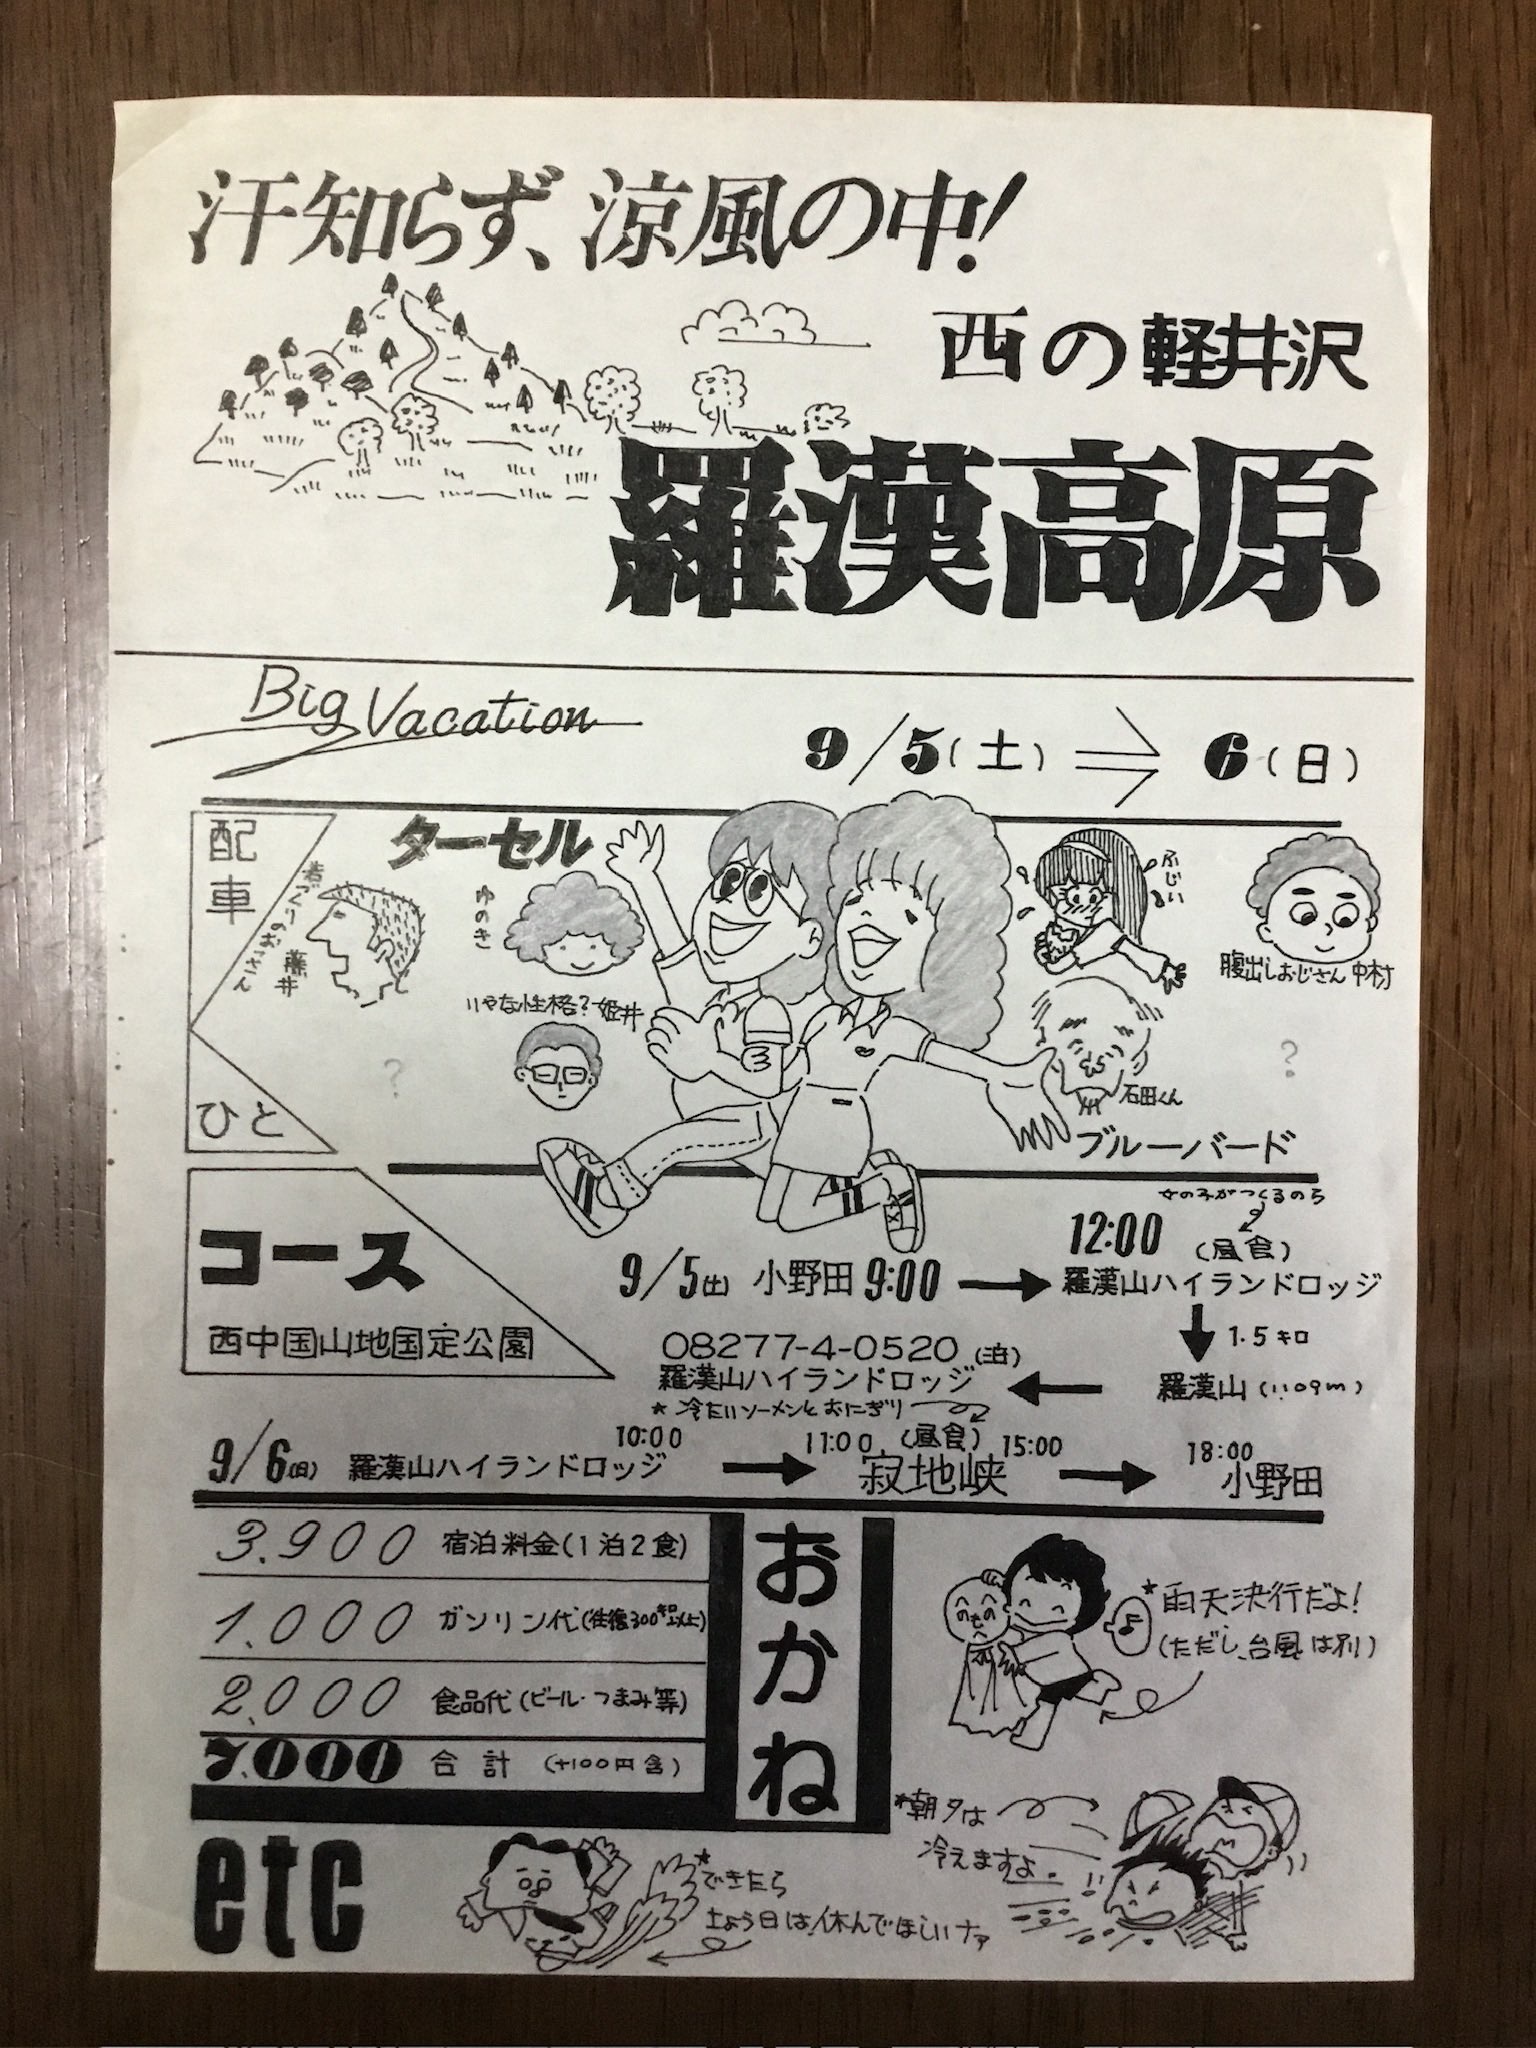 汗知らず、涼風の中!
西の軽井沢
羅漢高原
Big Vacation
9/5(土) ⇒ 6(日)
配車
ターセル
若づくりのおっさん
藤井
ゆのき
いやな性格?姫井
?
ふじい
腹出しおじさん 中村
石田くん
?
ブルーバード
ひと
コース
西中国山地国定公園
女の子がつくるのら
9/5(土) 小野田 9:00 → 12:00 (昼食)
羅漢山ハイランドロッジ
↓ 1.5キロ
羅漢山 (1109m)
←
08277-4-0520 (泊)
羅漢山ハイランドロッジ
★ 冷たいソーメンとおにぎり
9/6(日) 羅漢山ハイランドロッジ 10:00 → 11:00 (昼食) 15:00
寂地峡 → 18:00
小野田
おかね
3.900 宿泊料金(1泊2食)
1.000 ガソリン代(往復300キロ以上)
2.000 食品代(ビール・つまみ等)
7.000 合計 (+100円含)
★雨天決行だよ!
(ただし、台風は別)
♪
*朝夕は
冷えますよ。
etc
★できたら
土よう日は休んでほしいナァ